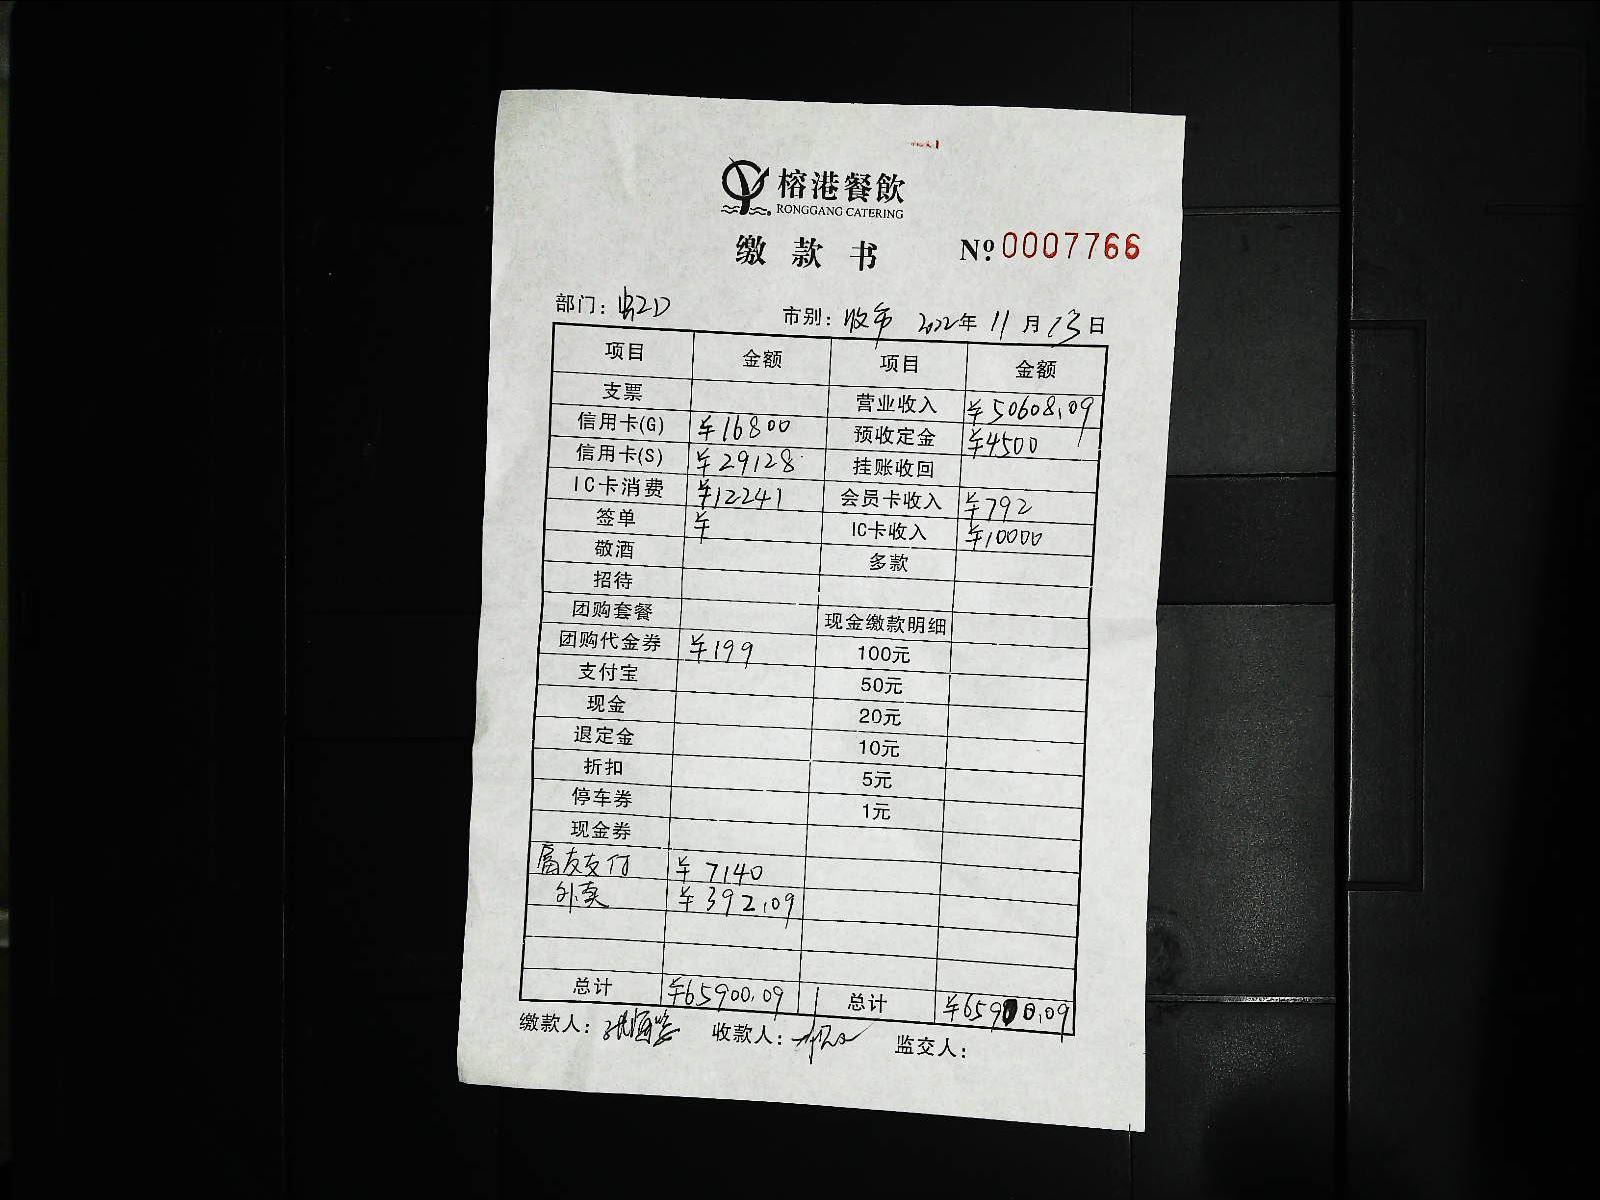 榕港餐飲
RONGGANG CATERING
缴款书 № 0007766
部门：虹口 市别：收市 2022年 11月 13日
项目 金额 项目 金额
支票 营业收入 ¥50608.09
信用卡(G) ¥16800 预收定金 ¥4500
信用卡(S) ¥29128 挂账收回
IC卡消费 ¥12241 会员卡收入 ¥792
签单 ¥ IC卡收入 ¥10000
敬酒 多款
招待
团购套餐 现金缴款明细
团购代金券 ¥199 100元
支付宝 50元
现金 20元
退定金 10元
折扣 5元
停车券 1元
现金券
富友支付 ¥7140
外卖 ¥392.09
总计 ¥65900.09 总计 ¥65900.09
缴款人： 收款人： 监交人：